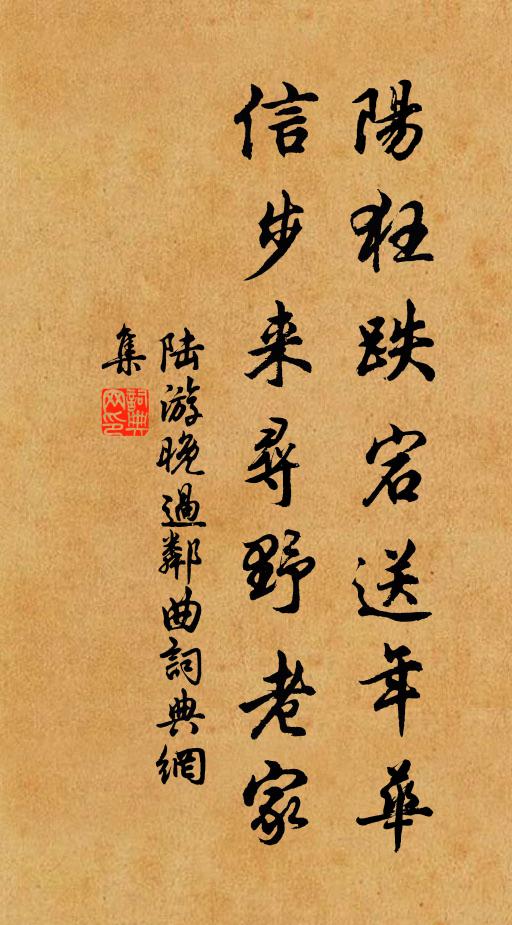 陽狂跌宕送年華
信步来尋野老家
陸游晚過鄰曲詞典網
集
詞典
网印